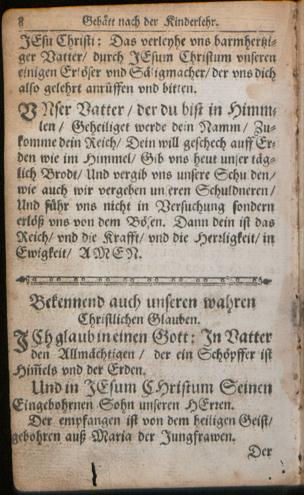 8 Gebätt nach der Kinderlehr.
JEsu Christi: Das verleyhe vns barmhertzi-
ger Vatter/ durch JEsum Christum vnseren
einigen Erlöser vnd Säligmacher/ der vns dich
also gelehrt anrüffen vnd bitten.
VNser Vatter/ der du bist in Himm-
len/ Geheiliget werde dein Namm/ Zu-
komme dein Reich/ Dein will geschech auff Er-
den wie im Himmel/ Gib vns heut unser täg-
lich Brodt/ Und vergib vns unsere Schulden/
wie auch wir vergeben unseren Schuldneren/
Und führ vns nicht in Versuchung sondern
erlöß vns von dem Bösen. Dann dein ist das
Reich/ vnd die Krafft/ vnd die Herrligkeit/ in
Ewigkeit/ AMEN.
Bekennend auch unseren wahren
Christlichen Glauben.
JCh glaub in einen Gott: In Vatter
den Allmächtigen/ der ein Schöpffer ist
Him̃els vnd der Erden.
Und in JEsum CHristum Seinen
Eingebohrnen Sohn unseren HErren.
Der empfangen ist von dem heiligen Geist/
gebohren auß Maria der Jungfrawen.
Der